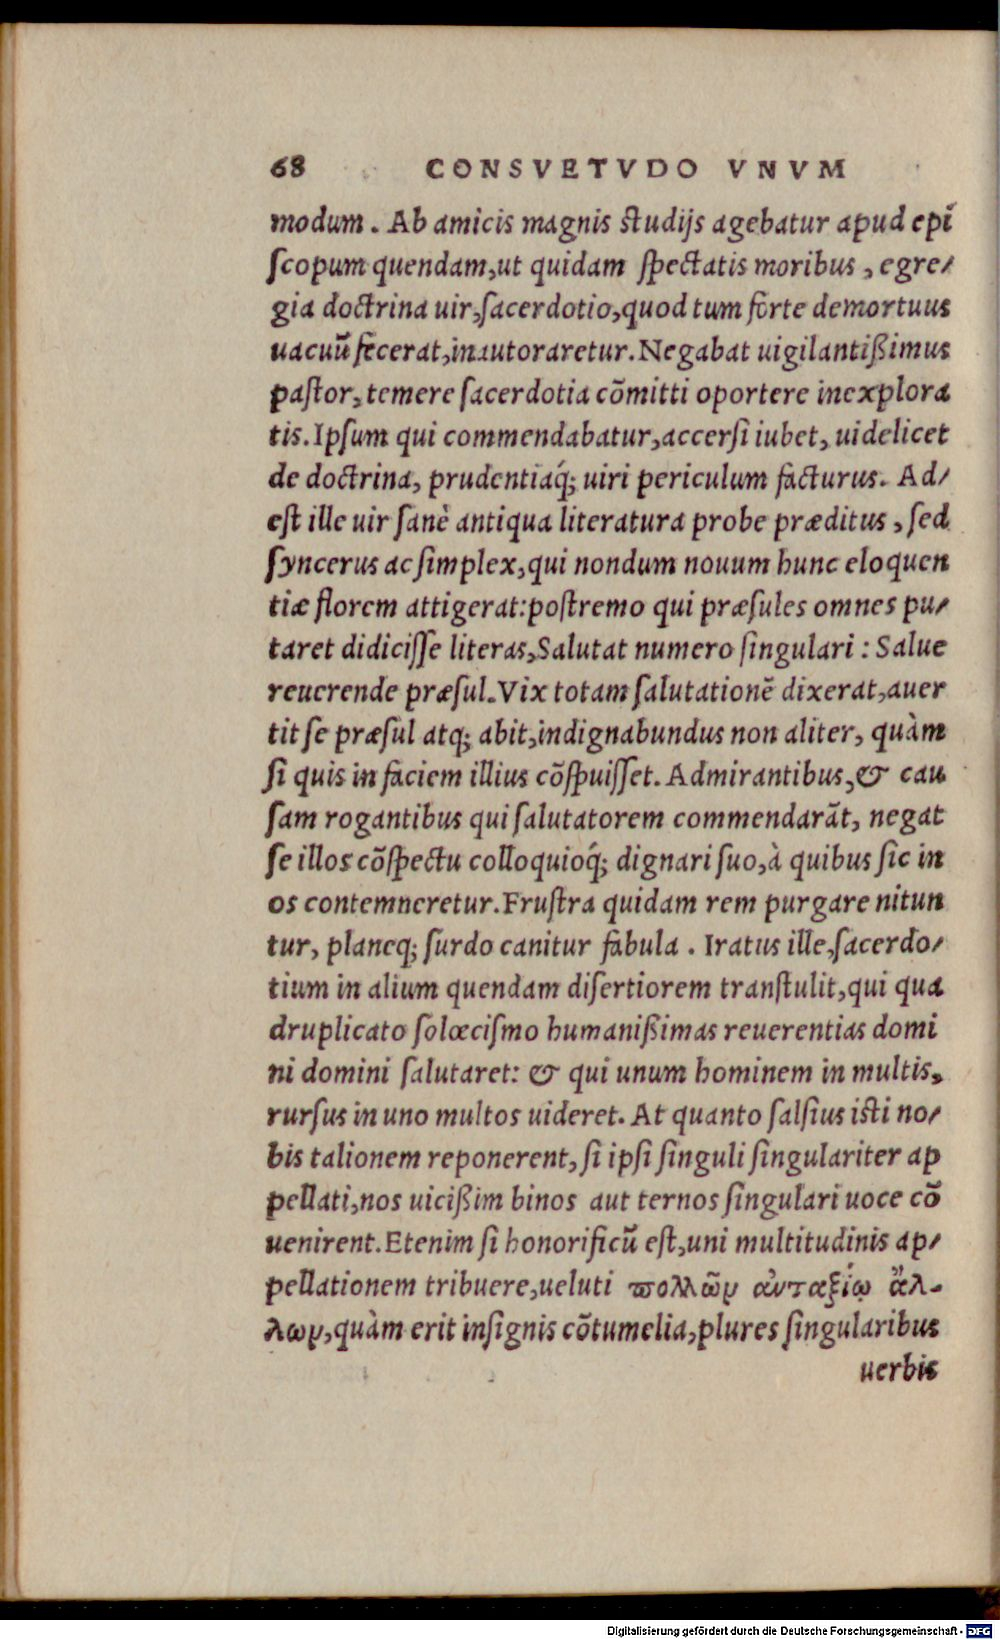 68 CONSVETVDO VNVM
modum. Ab amicis magnis ſtudijs agebatur apud epĩ
ſcopum quendam, ut quidam ſpectatis moribus, egre/
gia doctrina uir, ſacerdotio, quod tum forte demortuus
uacuũ fecerat, inautoraretur. Negabat uigilantißimus
paſtor, temere ſacerdotia cõmitti oportere inexplora
tis. Ipſum qui commendabatur, accerſi iubet, uidelicet
de doctrina, prudentiaq́; uiri periculum facturus. Ad/
eſt ille uir ſanè antiqua literatura probe præditus, ſed
ſyncerus ac ſimplex, qui nondum nouum hunc eloquen
tiæ florem attigerat: poſtremo qui præſules omnes pu/
taret didiciſſe literas, Salutat numero ſingulari: Salue
reuerende præſul. Vix totam ſalutationẽ dixerat, auer
tit ſe præſul atq; abit, indignabundus non aliter, quàm
ſi quis in faciem illius cõſpuiſſet. Admirantibus, & cau
ſam rogantibus qui ſalutatorem commendarãt, negat
ſe illos cõſpectu colloquioq́; dignari ſuo, à quibus ſic in
os contemneretur. Fruſtra quidam rem purgare nitun
tur, planeq; ſurdo canitur fabula. Iratus ille, ſacerdo/
tium in alium quendam diſertiorem tranſtulit, qui qua
druplicato ſolœciſmo humanißimas reuerentias domi
ni domini ſalutaret: & qui unum hominem in multis,
rurſus in uno multos uideret. At quanto ſalſius iſti no/
bis talionem reponerent, ſi ipſi ſinguli ſingulariter ap
pellati, nos uicißim binos aut ternos ſingulari uoce cõ
uenirent. Etenim ſi honorificũ eſt, uni multitudinis ap/
pellationem tribuere, ueluti πολλῶν ἀνταξίῳ ἄλ-
λων, quàm erit inſignis cõtumelia, plures ſingularibus
uerbis
Digitalisierung gefördert durch die Deutsche Forschungsgemeinschaft - DFG